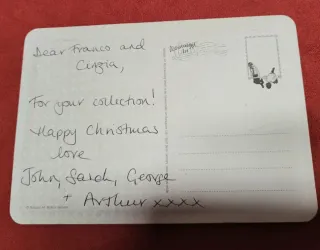 Dear Franco and
Cinzia,
For your collection!
Happy Christmas
love
John, Sarah, George
+ Arthur xxxx